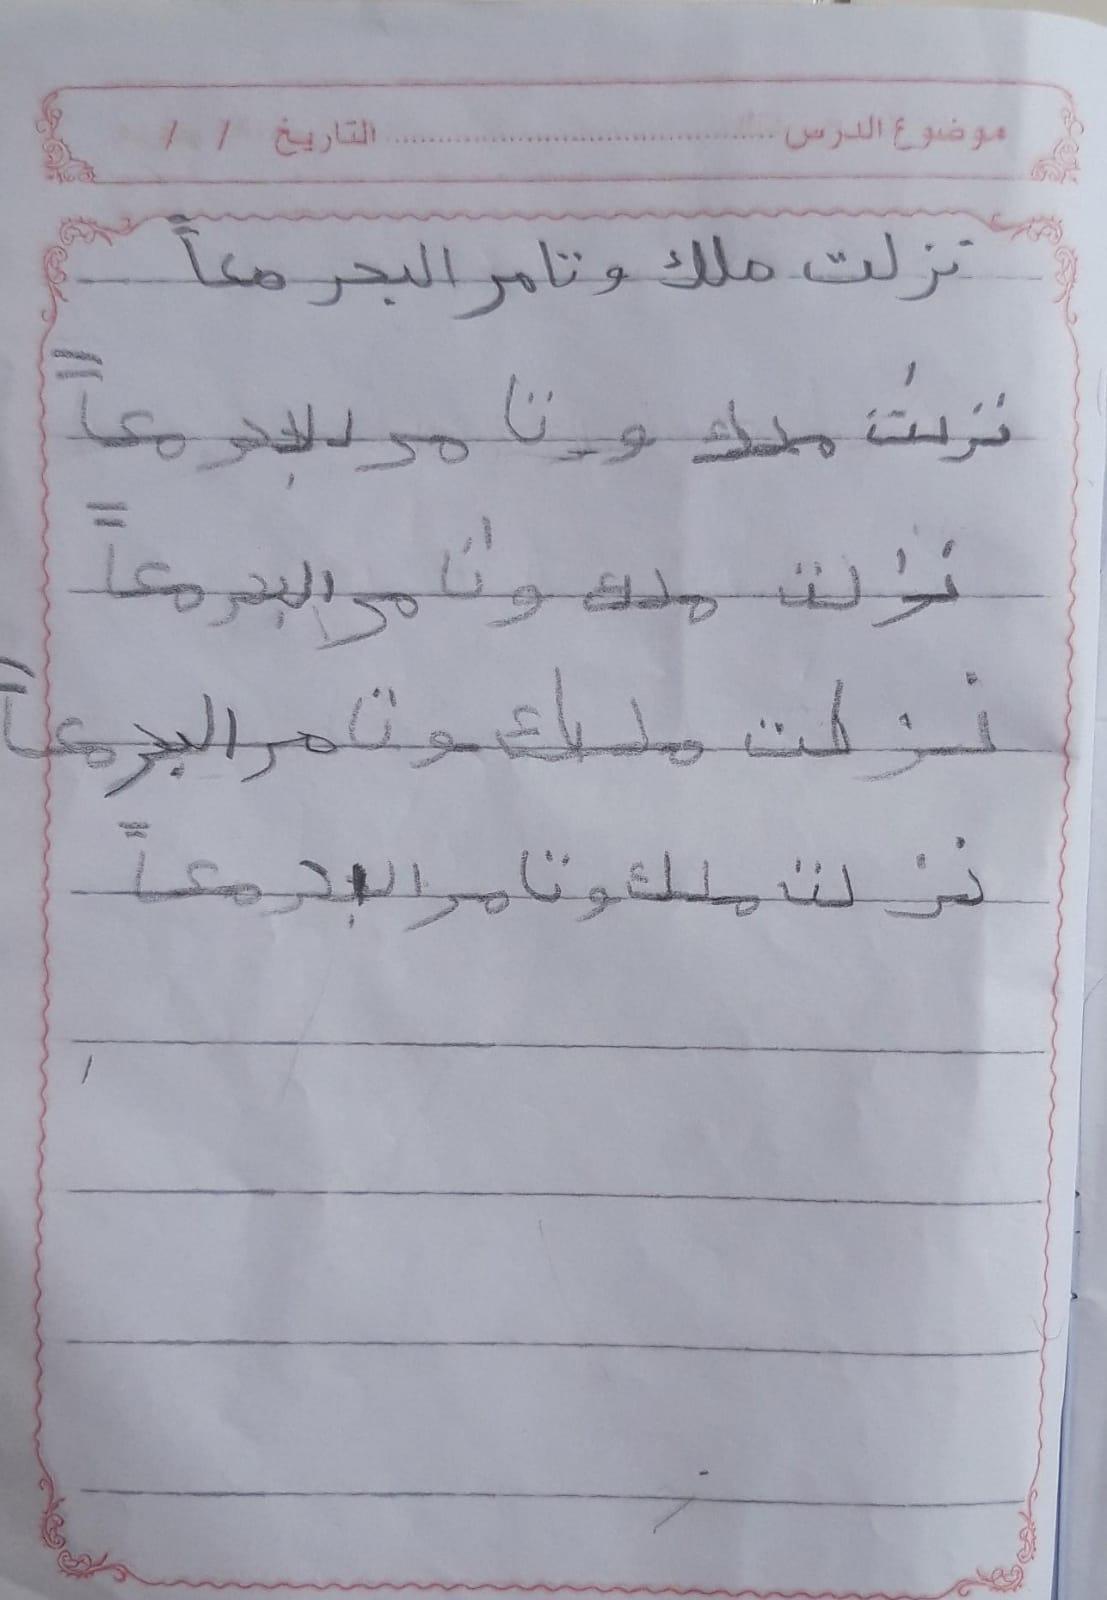 موضوع الدرس ........................ التاريخ / /
نزلت ملك وتامر البحر معاً
نزلت ملك و تامر البحر معاً
نزلت ملك و تامر البحر معاً
نزلت ملك و تامر البحر معاً
نزلت ملك وتامر البحر معاً